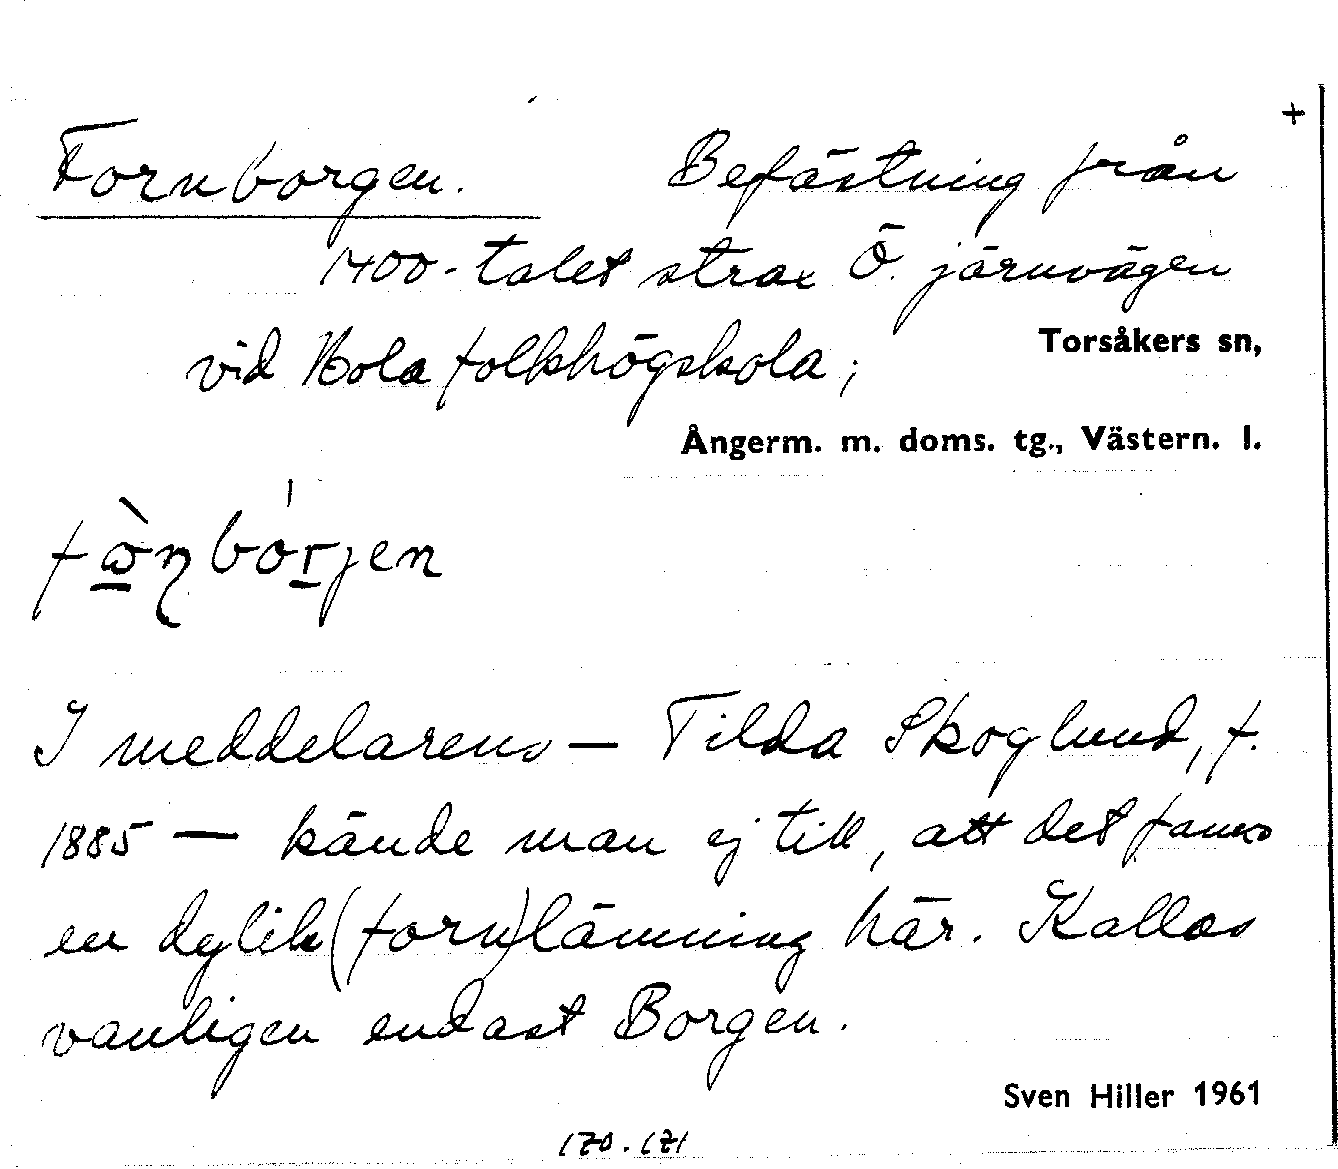 +
Fornborgen. Befästning från
1400-talet strax Ö. järnvägen
vid Hola folkhögskola;
Torsåkers sn,
Ångerm. m. doms. tg., Västern. l.
I meddelarens — Tilda Skoglund, f.
1885 — kände man ej till, att det fanns
en dylik (forn)lämning här. Kallas
vanligen endast Borgen.
Sven Hiller 1961
170.171